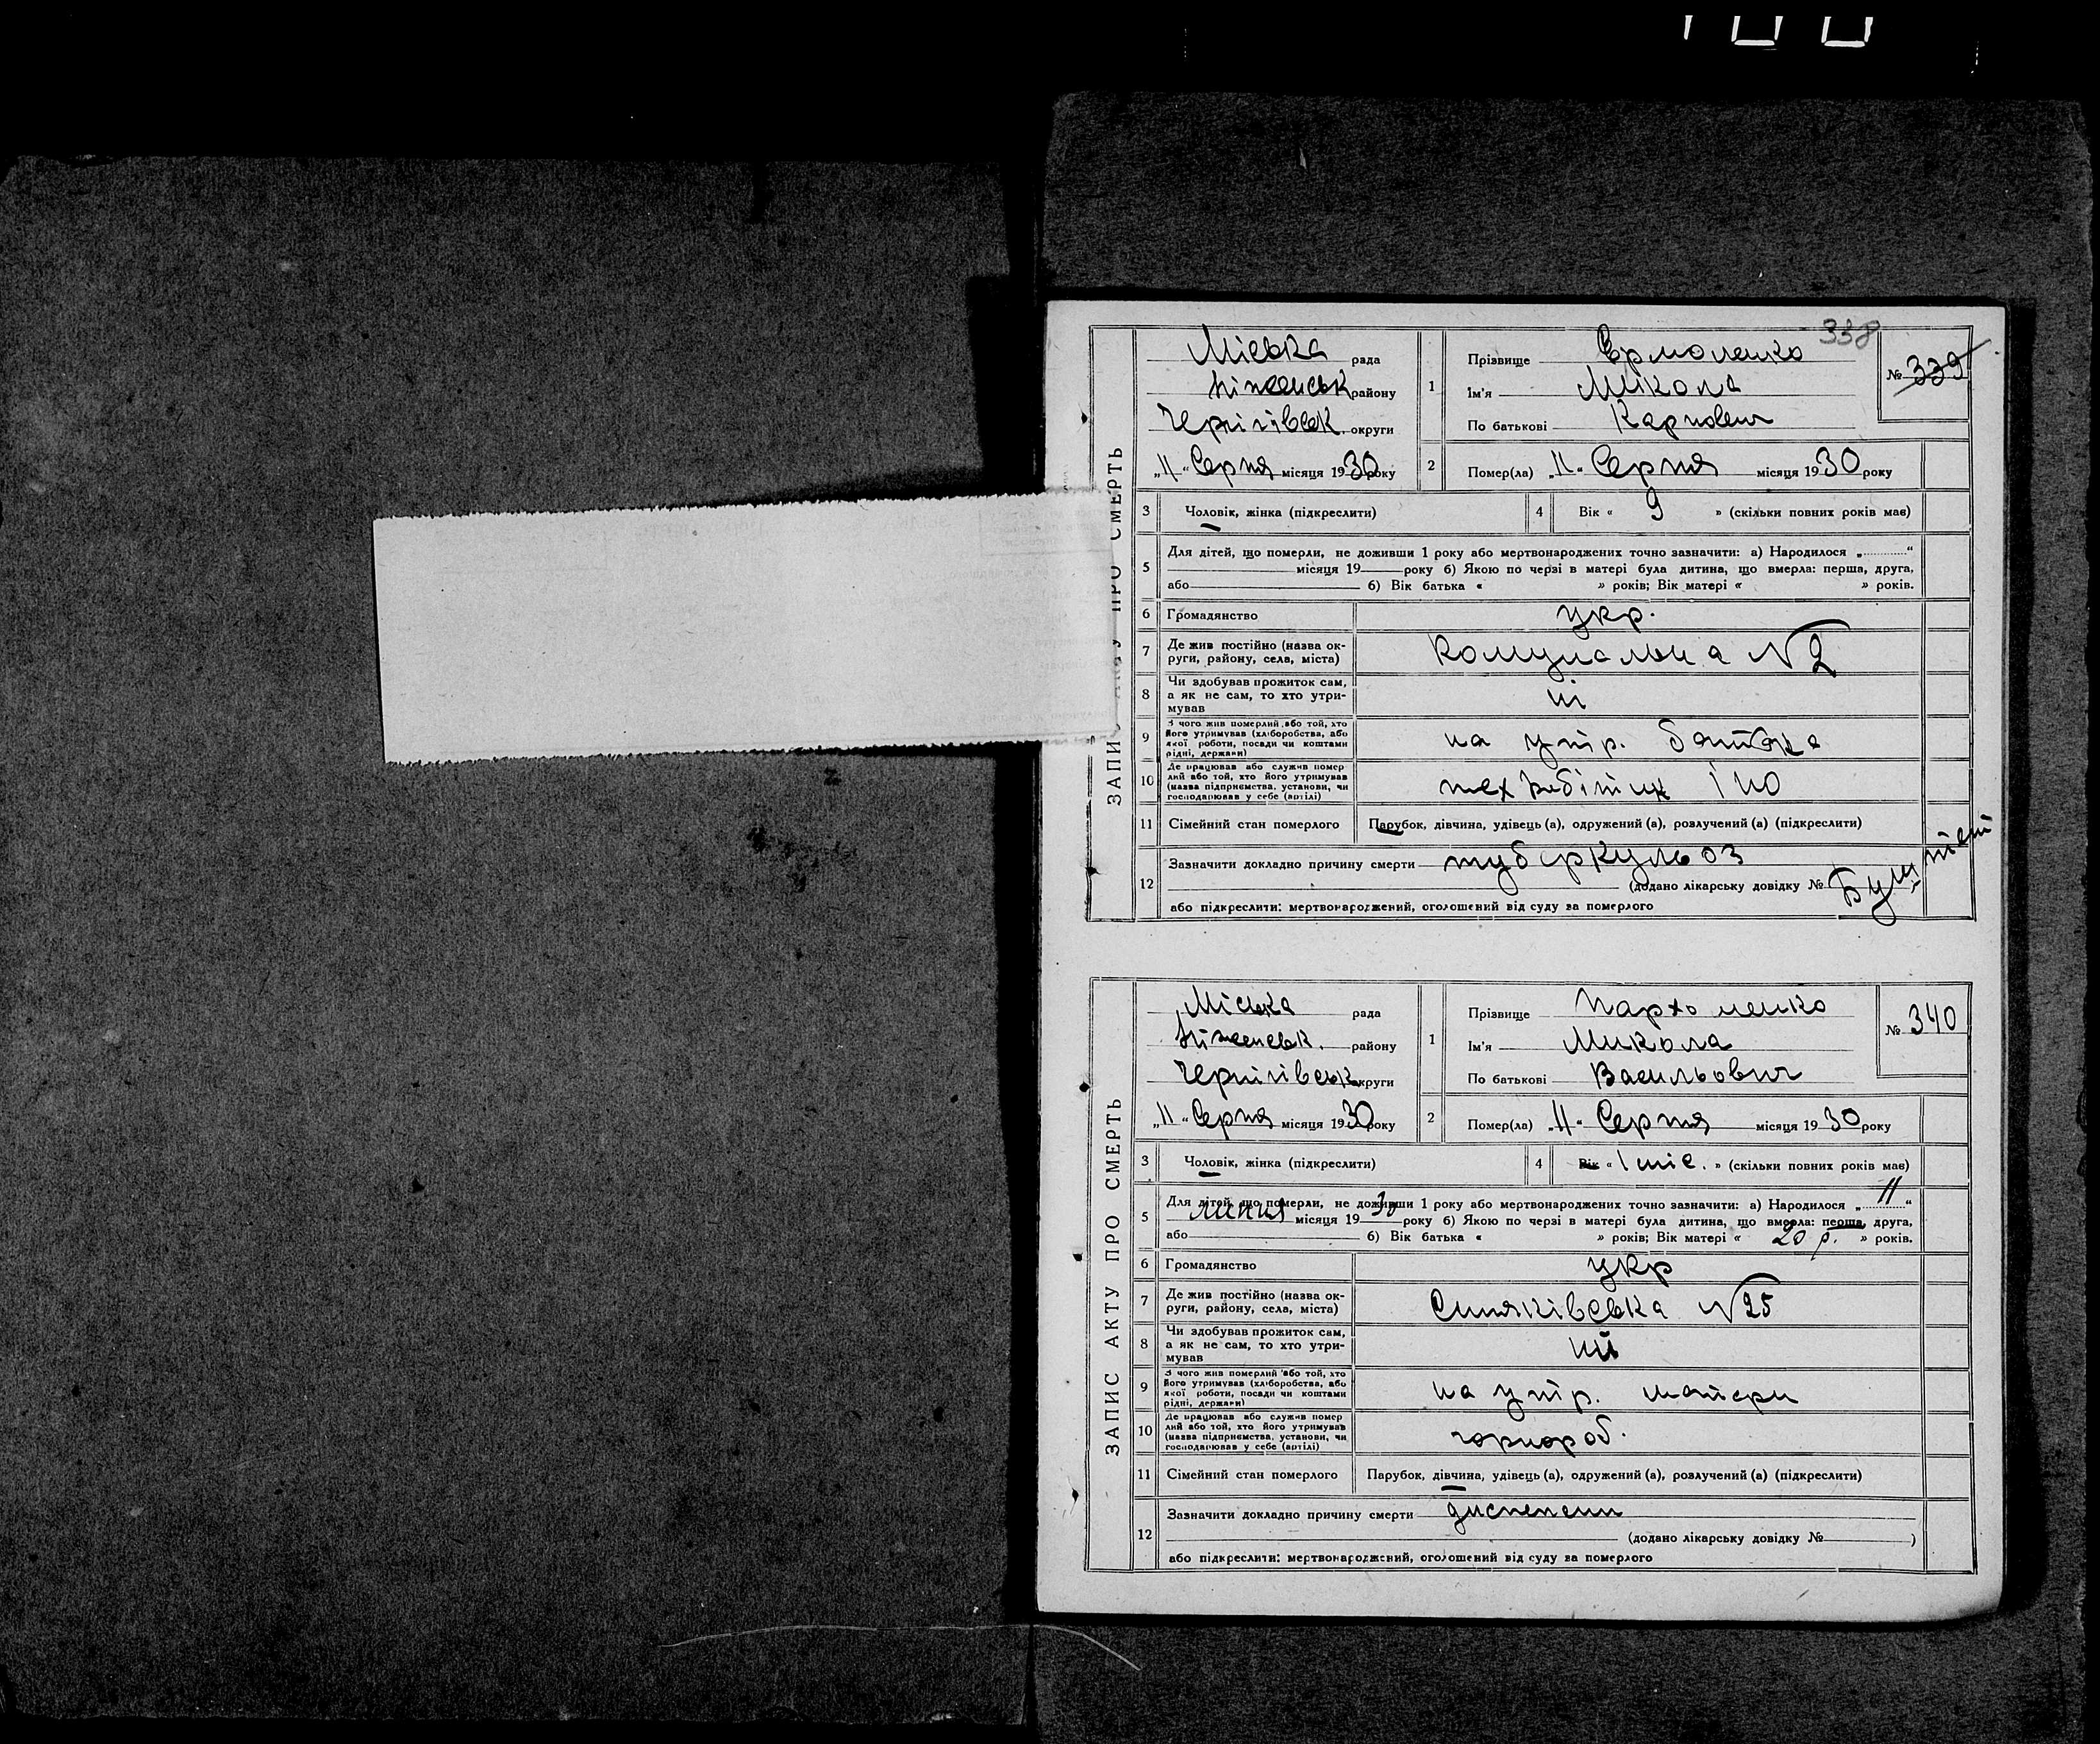 338
ЗАПИС АКТУ ПРО СМЕРТЬ
Міська рада
Ніженськ району
Чернігівськ. округи
„11“ Серпня місяця 1930 року
1
Прізвище Єрмоленко
Ім'я Мікола
По батькові Карпович
№ 339
2 Помер(ла) „11“ Серпня місяця 1930 року
3 Чоловік, жінка (підкреслити)
4 Вік « 9 » (скільки повних років має)
5 Для дітей, що померли, не доживши 1 року або мертвонароджених точно зазначити: а) Народилося „ “
місяця 19 року б) Якою по черзі в матері була дитина, що вмерла: перша, друга,
або б) Вік батька « » років; Вік матері « » років.
6 Громадянство укр.
7 Де жив постійно (назва округи, району, села, міста) Комунальна №2
8 Чи здобував прожиток сам, а як не сам, то хто утримував ні
9 З чого жив померлий або той, хто його утримував (хліборобства, або якої роботи, посади чи коштами рідні, держави) на утр. батька
10 Де працював або служив помер лий або той, хто його утримував (назва підприємства, установи, чи господарював у себе (артілі)
11 Сімейний стан померлого Парубок, дівчина, удівець (а), одружений (а), розлучений (а) (підкреслити)
12 Зазначити докладно причину смерти туберкульоз
(додано лікарську довідку №
або підкреслити: мертвонароджений, оголошений від суду за померлого
ЗАПИС АКТУ ПРО СМЕРТЬ
Міська рада
Ніженськ. району
Чернігівськ округи
„11“ Серпня місяця 1930 року
1
Прізвище Пархоменко
Ім'я Микола
По батькові Васильович
№ 340
2 Помер(ла) „11“ Серпня місяця 1930 року
3 Чоловік, жінка (підкреслити)
4 Вік « 1 міс. » (скільки повних років має)
5 Для дітей, що померли, не доживши 1 року або мертвонароджених точно зазначити: а) Народилося „11“
липня місяця 1930 року б) Якою по черзі в матері була дитина, що вмерла: перша, друга,
або б) Вік батька « » років; Вік матері « 20 р. » років.
6 Громадянство укр
7 Де жив постійно (назва округи, району, села, міста) Синяківська №25
8 Чи здобував прожиток сам, а як не сам, то хто утримував ні
9 З чого жив померлий або той, хто його утримував (хліборобства, або якої роботи, посади чи коштами рідні, держави) на утр. матери
10 Де працював або служив помер лий або той, хто його утримував (назва підприємства, установи, чи господарював у себе (артілі) чорнороб.
11 Сімейний стан померлого Парубок, дівчина, удівець (а), одружений (а), розлучений (а) (підкреслити)
12 Зазначити докладно причину смерти диспепсии
(додано лікарську довідку № )
або підкреслити: мертвонароджений, оголошений від суду за померлого